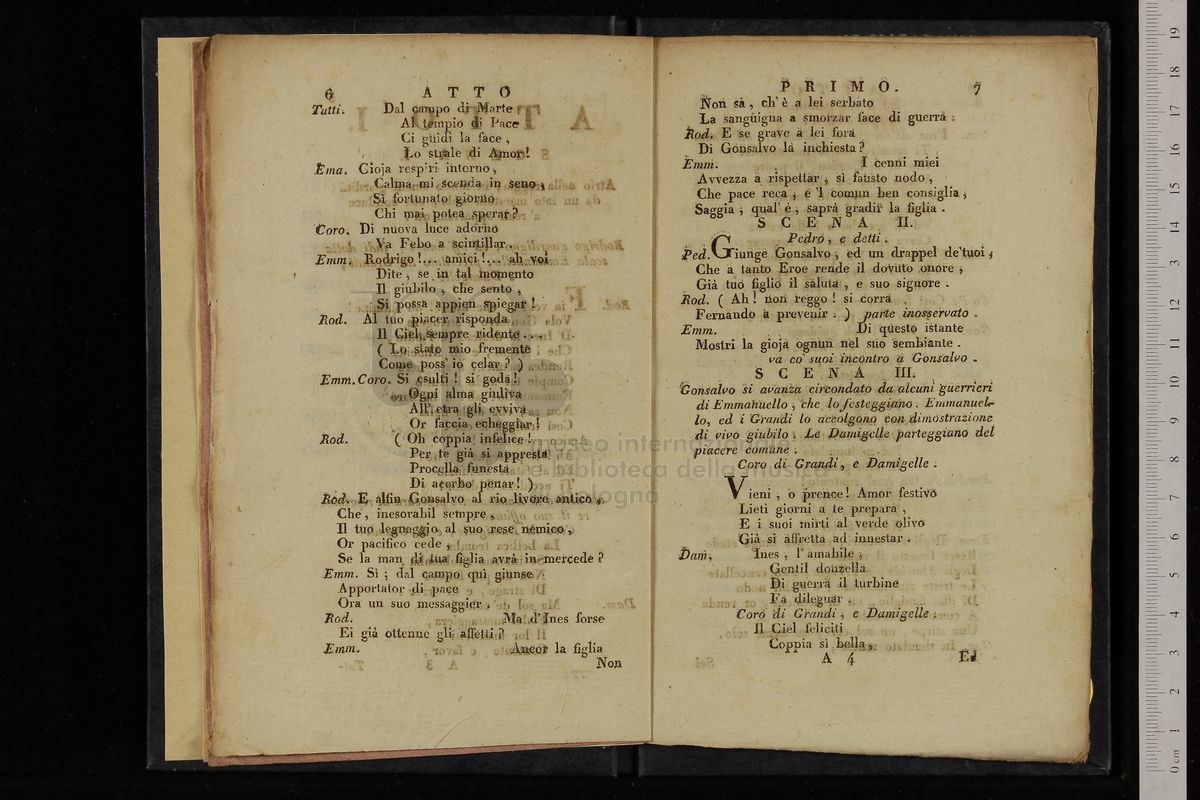 6 ATTO
Tutti. Dal campo di Marte
Al tempio di Pace
Ci guidi la face ,
Lo strale di Amor!
Ema. Gioja respiri intorno ,
Calma mi scenda in seno ,
Si fortunato giorno
Chi mai potea sperar ?
Coro. Di nuova luce adorno
Va Febo a scintillar .
Emm. Rodrigo !... amici !... ah voi
Dite , se in tal momento
Il giubilo , che sento ,
Si possa appien spiegar !
Rod. Al tuo piacer risponda
Il Ciel sempre ridente ...
( Lo stato mio fremente
Come poss' io celar ? )
Emm. Coro. Si esulti ! si goda !
Ogni alma giuliva
All' etra gli evviva
Or faccia echeggiar !
Rod. ( Oh coppia infelice !
Per te già si appresta
Procella funesta
Di acerbo penar ! )
Rod. E alfin Gonsalvo al rio livore antico ,
Che , inesorabil sempre ,
Il tuo legnaggio al suo rese nemico ,
Or pacifico cede ,
Se la man di tua figlia avrà in mercede ?
Emm. Sì ; dal campo quì giunse
Apportator di pace
Ora un suo messaggier .
Rod. Ma d' Ines forse
Ei già ottenne gli affetti ?
Emm. Ancor la figlia
Non
PRIMO. 7
Non sà , ch' è a lei serbato
La sanguigna a smorzar face di guerra :
Rod. E se grave a lei fora
Di Gonsalvo la inchiesta ?
Emm. I cenni miei
Avvezza a rispettar , sì fausto nodo ,
Che pace reca , e 'l comun ben consiglia ,
Saggia , qual' è , saprà gradir la figlia .
SCENA II.
Pedro , e detti .
Ped. Giunge Gonsalvo , ed un drappel de' tuoi ,
Che a tanto Eroe rende il dovuto onore ,
Già tuo figlio il saluta , e suo signore .
Rod. ( Ah ! non reggo ! si corra
Fernando a prevenir . ) parte inosservato .
Emm. Di questo istante
Mostri la gioja ognun nel suo sembiante .
va co' suoi incontro a Gonsalvo .
SCENA III.
Gonsalvo si avanza circondato da alcuni guerrieri
di Emmanuello , che lo festeggiano . Emmanuel-
lo, ed i Grandi lo accolgono con dimostrazione
di vivo giubilo . Le Damigelle parteggiano del
piacere comune .
Coro di Grandi , e Damigelle .
Vieni , o prence ! Amor festivo
Lieti giorni a te prepara ,
E i suoi mirti al verde olivo
Già si affretta ad innestar .
Dam. Ines , l' amabile ,
Gentil donzella
Di guerra il turbine
Fa dileguar .
Coro di Grandi , e Damigelle .
Il Ciel feliciti
Coppia sì bella ,
A 4 Ed
museo internazionale
e biblioteca della musica
di bologna